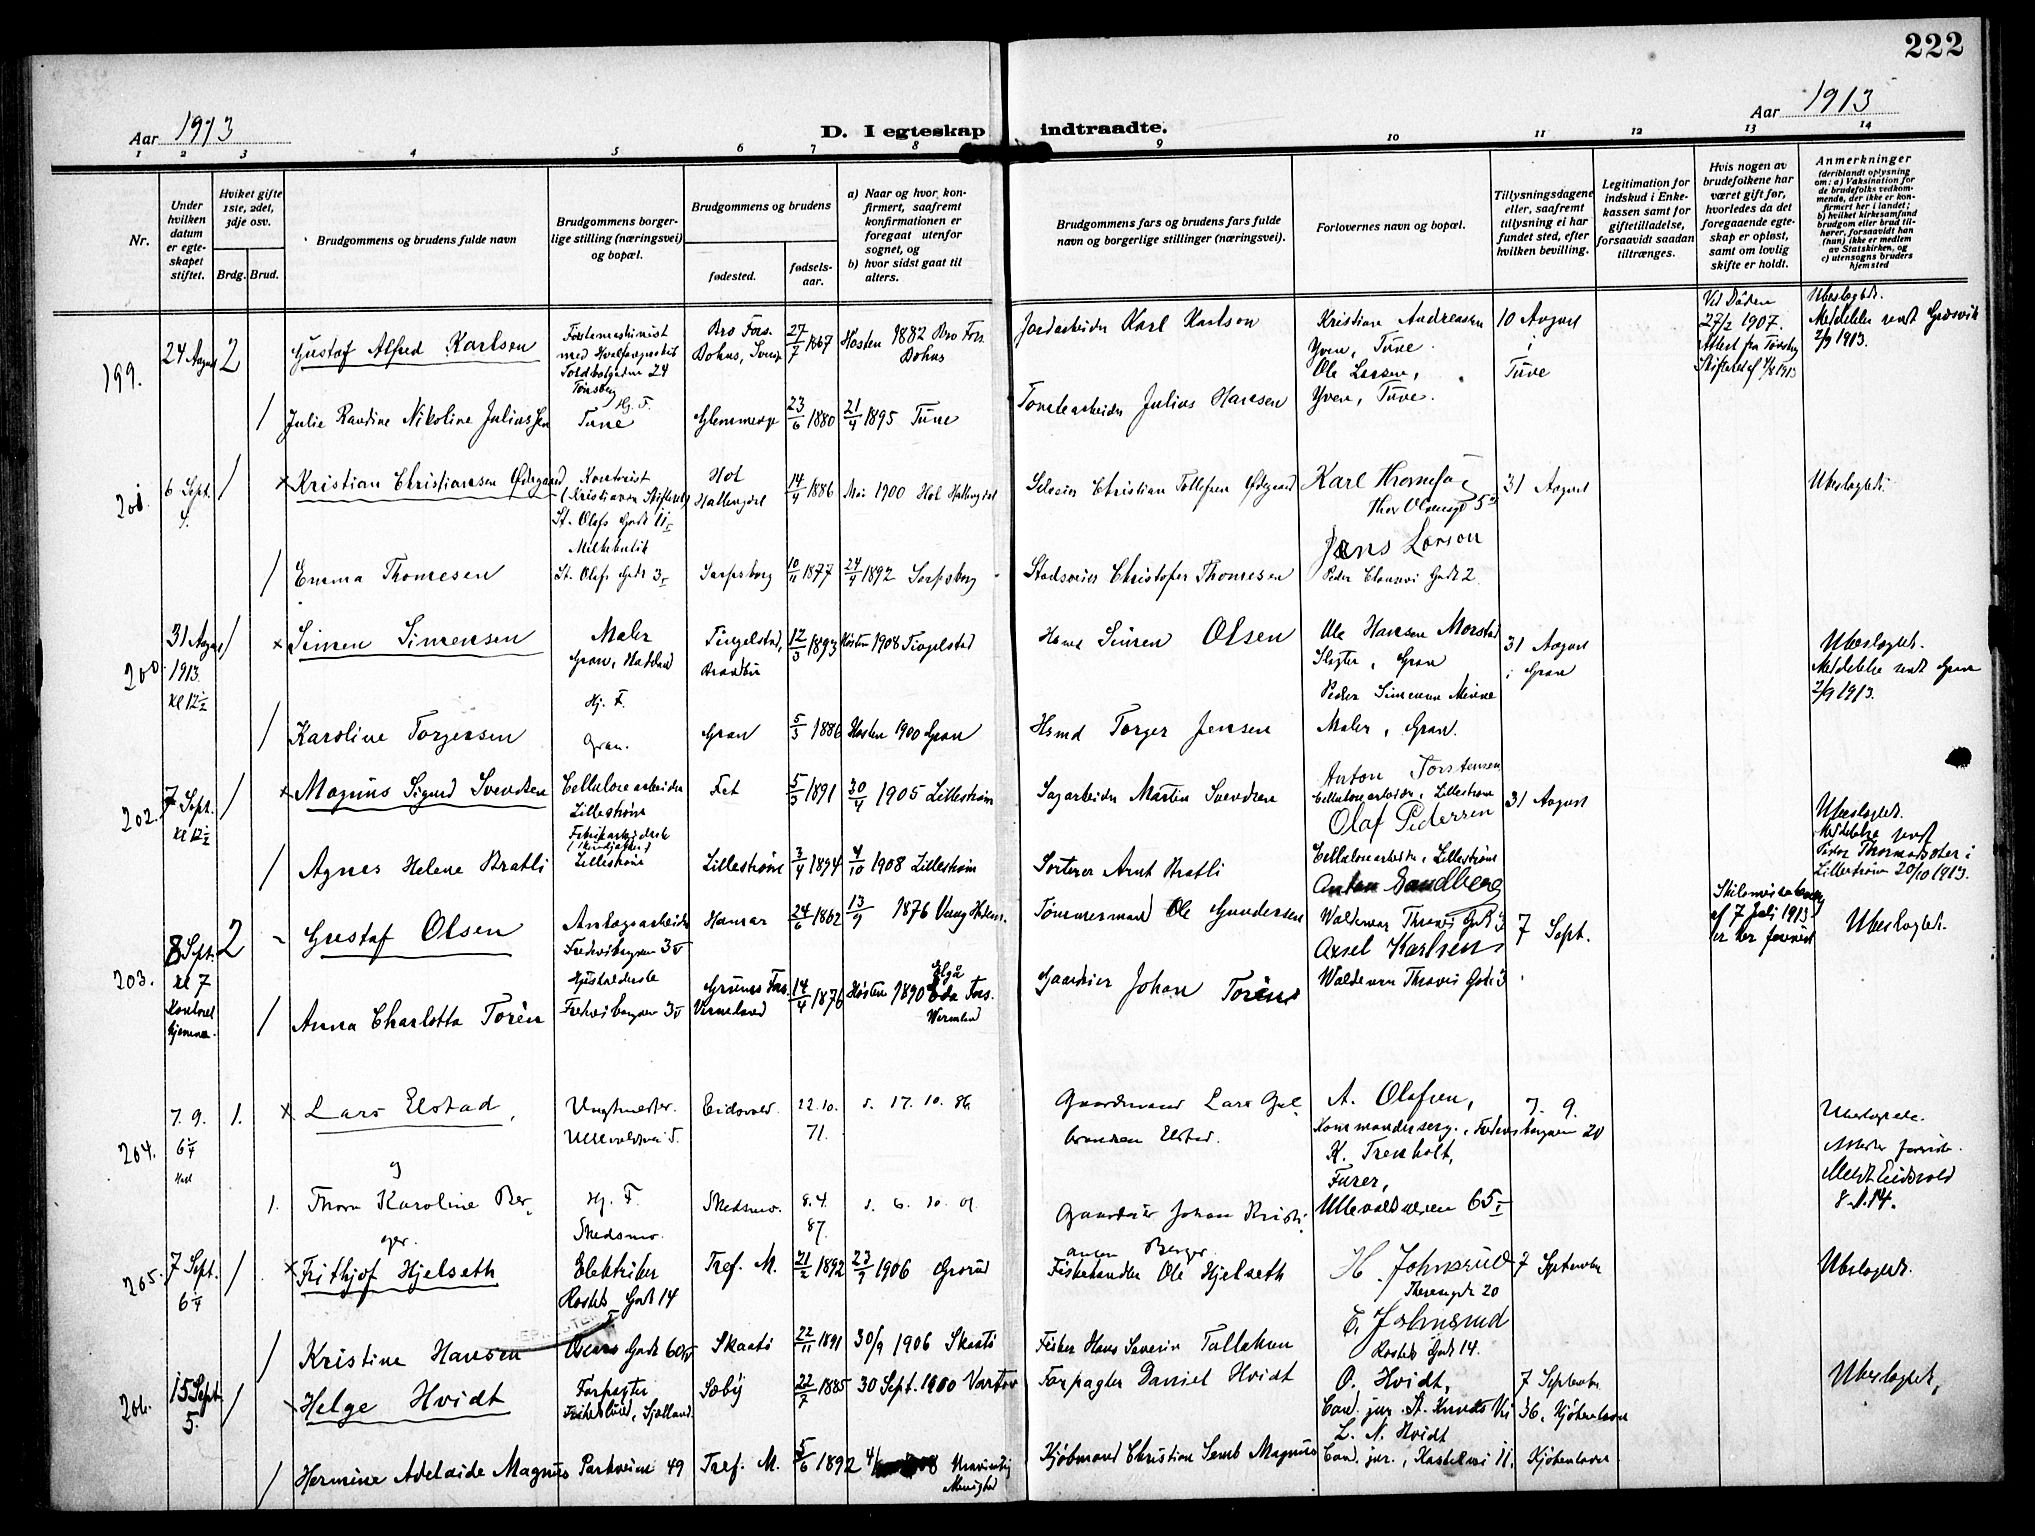 222
Aar 1913
D. I egteskap indtraadte.
Aar 1913
1 2 3 4 5 6 7 8 9 10 11 12 13 14
Nr.
Under hvilken datum er egteskapet stiftet.
Hviket gifte 1ste, 2det, 3dje osv.
Brdg. Brud.
Brudgommens og brudens fulde navn
Brudgommens borgerlige stilling (næringsvei) og bopæl.
Brudgommens og brudens
fødested. fødselsaar.
a) Naar og hvor konfirmert, saafremt konfirmationen er foregaat utenfor sognet, og
b) hvor sidst gaat til alters.
Brudgommens fars og brudens fars fulde navn og borgerlige stillinger (næringsvei).
Forlovernes navn og bopæl.
Tillysningsdagene eller, saafremt tillysning ei har fundet sted, efter hvilken bevilling.
Legitimation for indskud i Enkekassen samt for giftetilladelse, forsaavidt saadan tiltrænges.
Hvis nogen av brudefolkene har været gift før, hvorledes da det foregaaende egteskap er opløst, samt om lovlig skifte er holdt.
Anmerkninger (deriblandt oplysning om: a) Vaksination for de brudefolks vedkommende, der ikke er konfirmert her i landet; b) hvilket kirkesamfund brudgom eller brud tilhører, forsaavidt han (hun) ikke er medlem av Statskirken, og c) utensogns bruders hjemsted
199. 24 August 2 Gustaf Alfred Karlsen
Tønsberg
27/7 1867 Høsten 1882
Jordarbeider Karl Karlson
Kristian Andreasen
Yven, Tune.
Ole Larsen,
Yven, Tune.
10 August
i
Tune
Ved Døden
27/2 1907.
Ubeslegtet.
Meddelelse sendt Greåsvik
2/9 1913.
1 Julie Randine Nikoline Juliussen
Hj. F.
Tune
Glemminge 23/6 1880 21/4 1895 Tune
Tomtearbeider Julius Hansen
201. 6 Sept. 1 × Kristian Christiansen Ødegaard
Kontorist
St. Olafs Gade 11
Hol
Hallingdal
14/4 1886 Mai 1900 Hol Hallingdal
Christian Tollefsen Ødegaard
31 August
Ubeslegtet.
1 Emma Thomesen
Milkebutik
St. Olafs Gade 3
Sarpsborg 10/11 1877 24/4 1892 Sarpsborg
Christofer Thomesen
Jens Larson
Peder Clausens Gade 2.
200. 31 August 1913. Kl 12½ 1 × Simen Simensen
Maler
Gran, Hadeland
Tingelstad,
Brandbu
12/3 1893 Høsten 1908 Tingelstad
Hsmd Simen Olsen
Ole Hansen Morstad
Slagter, Gran
Peder Simensen
Maler, Gran.
31 August
i Gran
Ubeslegtet.
Meddelelse sendt Gran
2/9 1913.
1 Karoline Torgersen
Hj. F.
Gran.
Gran 5/3 1886 Høsten 1900 Gran
Hsmd Torger Jensen
202. 7 Sept. kl 12½ 1 × Magnus Sigurd Svendsen
Cellulosearbeider
Lillestrøm
Fet 5/3 1891 30/4 1905 Lillestrøm
Sagarbeider Martin Svendsen
Anton Torstensen
Cellulosearbeider, Lillestrøm
Olaf Pedersen
Cellulosearbeider, Lillestrøm
31 August
Ubeslegtet.
Meddelelse sendt
Lillestrøm 20/10 1913.
1 Agnes Helene Bratli
Fabrikarbeiderske
Lillestrøm
Lillestrøm 3/4 1894 4/10 1908 Lillestrøm
Sorterer Arnt Bratli
203. 8 Sept. kl 7
2 Gustaf Olsen
Anlægsarbeider
Hamar 24/6 1862 13/9 1876 Vang Hedem.
Tømmermand Ole Gundersen
Anton Sandberg
Waldemar Thranes Gade 3
Axel Karlsen
Waldemar Thranes Gade 3
7 Sept.
af 7 Juli 1913
Ubeslegtet.
1 Anna Charlotta Torén
Husholderske
Vermeland
14/4 1876 Høsten 1890 Eda Fors.
Wermland
Gaardeier Johan Torén
204. 7. 9. 6¼
1. × Lars Elstad,
Vagtmester.
Ullevoldsvei 5.
Eidsvold. 22. 10. 71. s. 17. 10. 86
Gaardmand Lars Gulbrandsen Elstad.
A. Olafsen,
Kommanderserg., Fredensborgveien 20
K. Trenholt,
Furer,
Ullevoldsveien 65
7. 9.
Ubeslegtede.
Meldt Eidsvold
8. 1. 14.
og
1. Thora Karoline Berger.
Hj. F.
Skedsmo.
Skedsmo. 8. 4. 87. s. 6. 10. 01
Gaardeier Johan Kristiansen Berger.
205. 7 Sept. 6¼ 1 × Frithjof Hjelseth
Elektriker
Tref. M. 21/2 1892 23/9 1906 Grorud
Fiskehandler Ole Hjelseth
H. Johnsrud
Theresegade 20
E. Johnsrud
7 September
Ubeslegtet.
1 Kristine Hansen
Skaatø 22/11 1891 30/9 1906 Skaatø
Fisker Hans Severin Tallaksen
206. 15 Sept. 5. 1 Helge Hvidt
Forpagter
Sjælland.
Sæby 22/7 1885 30 Sept. 1900 Vartov
Forpagter Daniel Hvidt
O. Hvidt,
Cand. jur. St. Knuds Vei 36, Kjøbenhavn
L. N. Hvidt
Cand. jur., Kastelsvei 11, Kjøbenhavn
7 September
Ubeslegtet,
1 Hermine Adelaide Magnus
Parkveien 49
Tref. M. 5/6 1892
Menighed
Kjøbmand Christian Semb Magnus